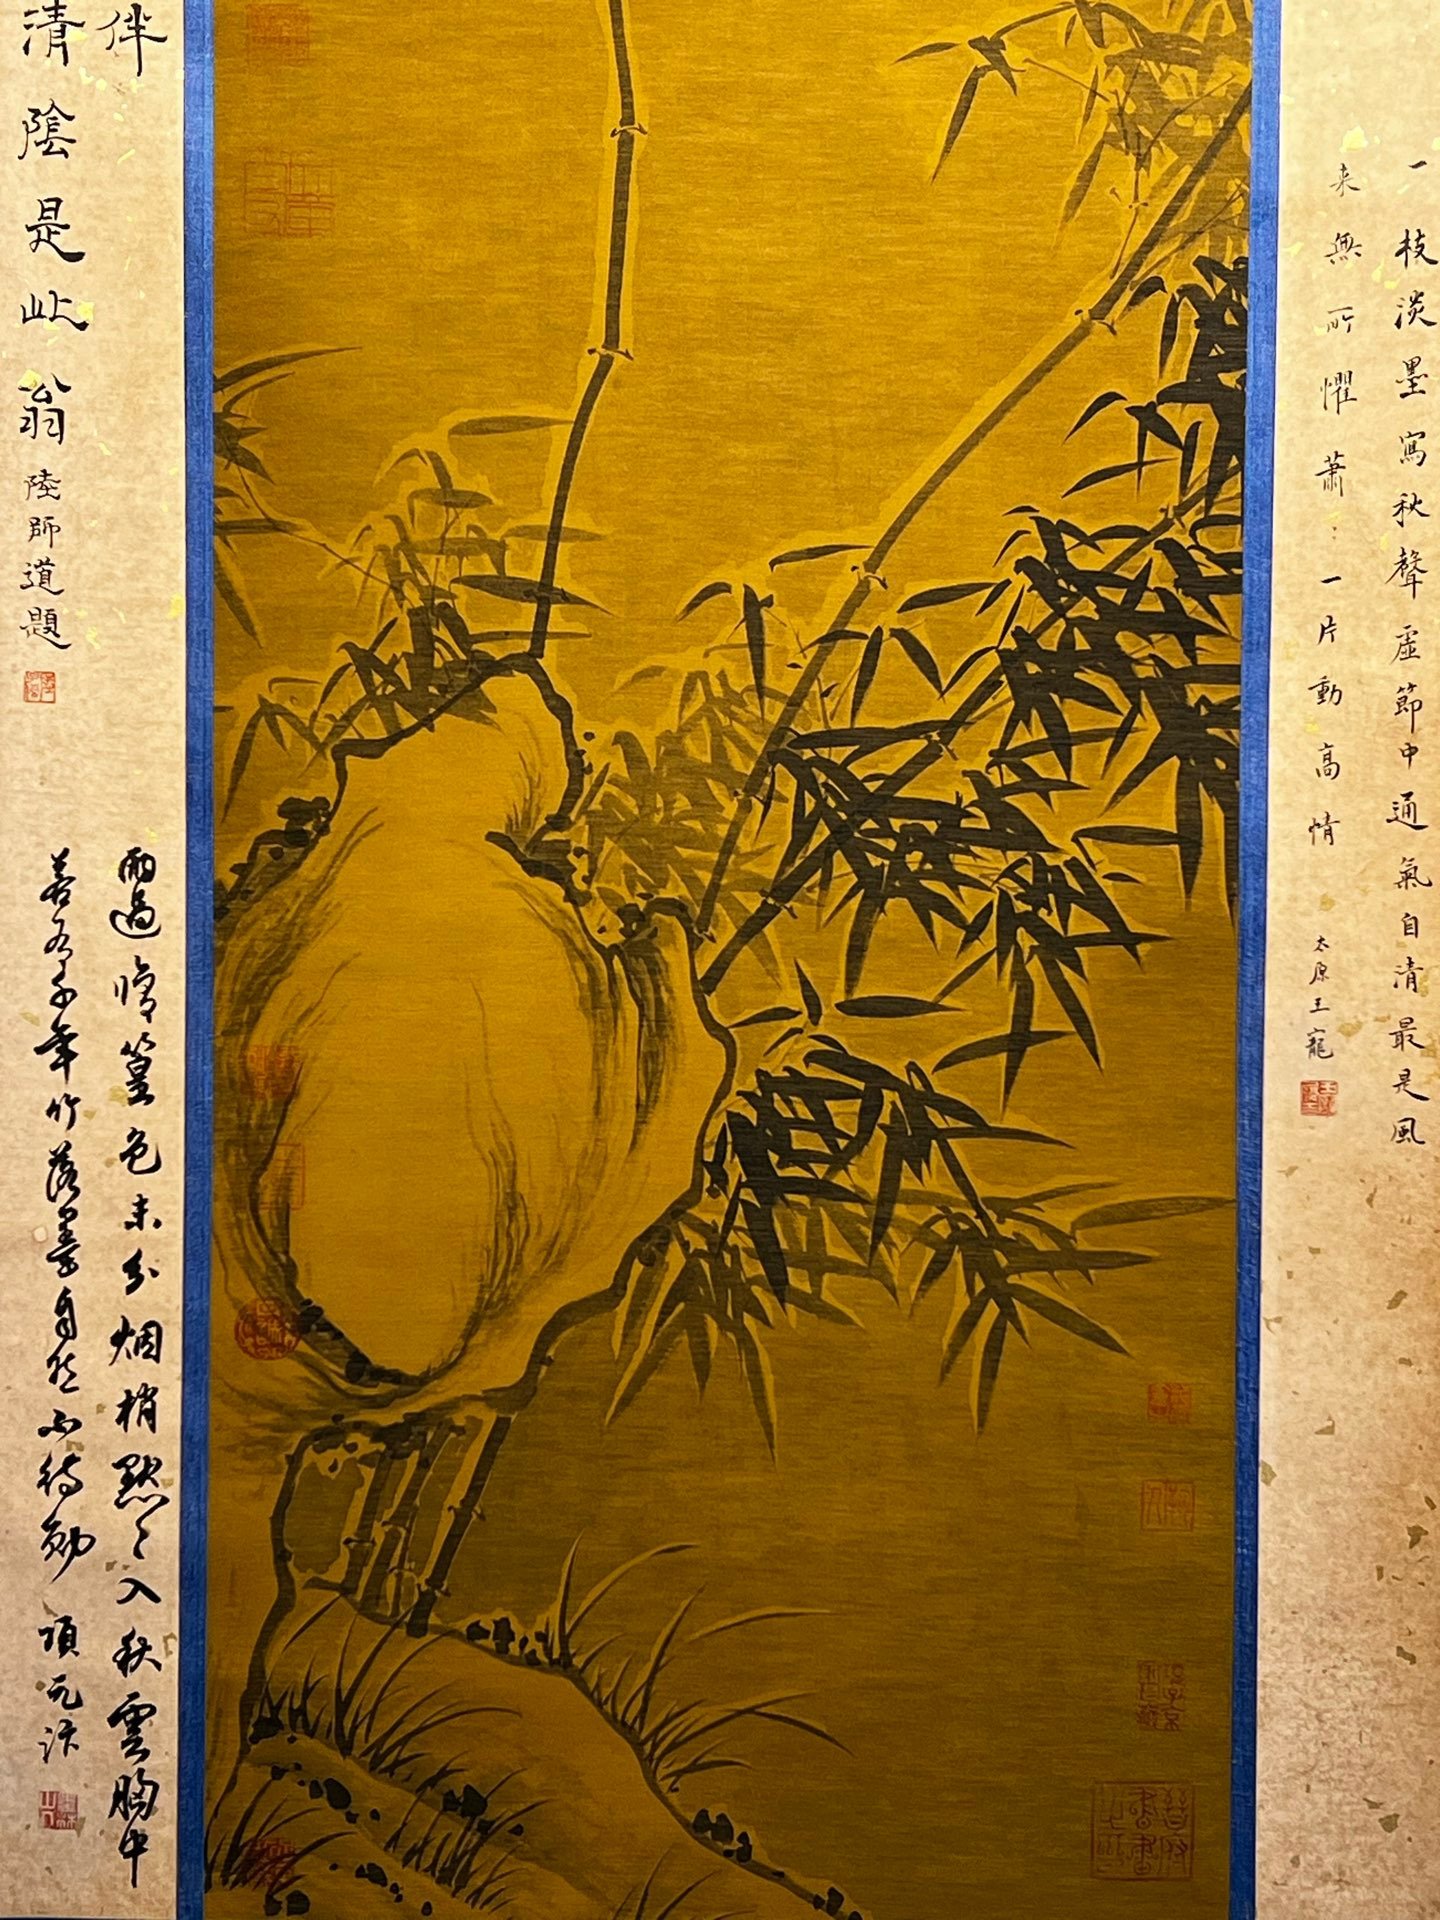 一枝淡墨寫秋聲虛節中通氣自清最是風
来無所懼蕭〻一片動高情
太原王寵
伴
清陰是此翁
陸師道題
雨過
篁色未分烟梢默〻入秋雲胸中
若有千年竹落墨自然不待勋
項元汴